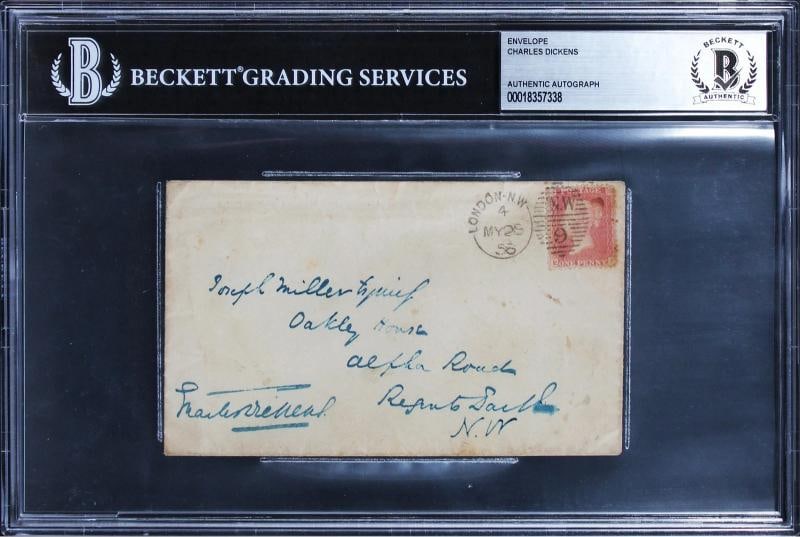 BECKETT® GRADING SERVICES
ENVELOPE
CHARLES DICKENS
AUTHENTIC AUTOGRAPH
00018357338
BECKETT
AUTHENTIC
LONDON-N.W
4
MY 28
POSTAGE
N.W
9
ONE PENNY
Joseph Miller Esquire
Oakley House
Alpha Road
Regents Park
N.W
Charles Dickens